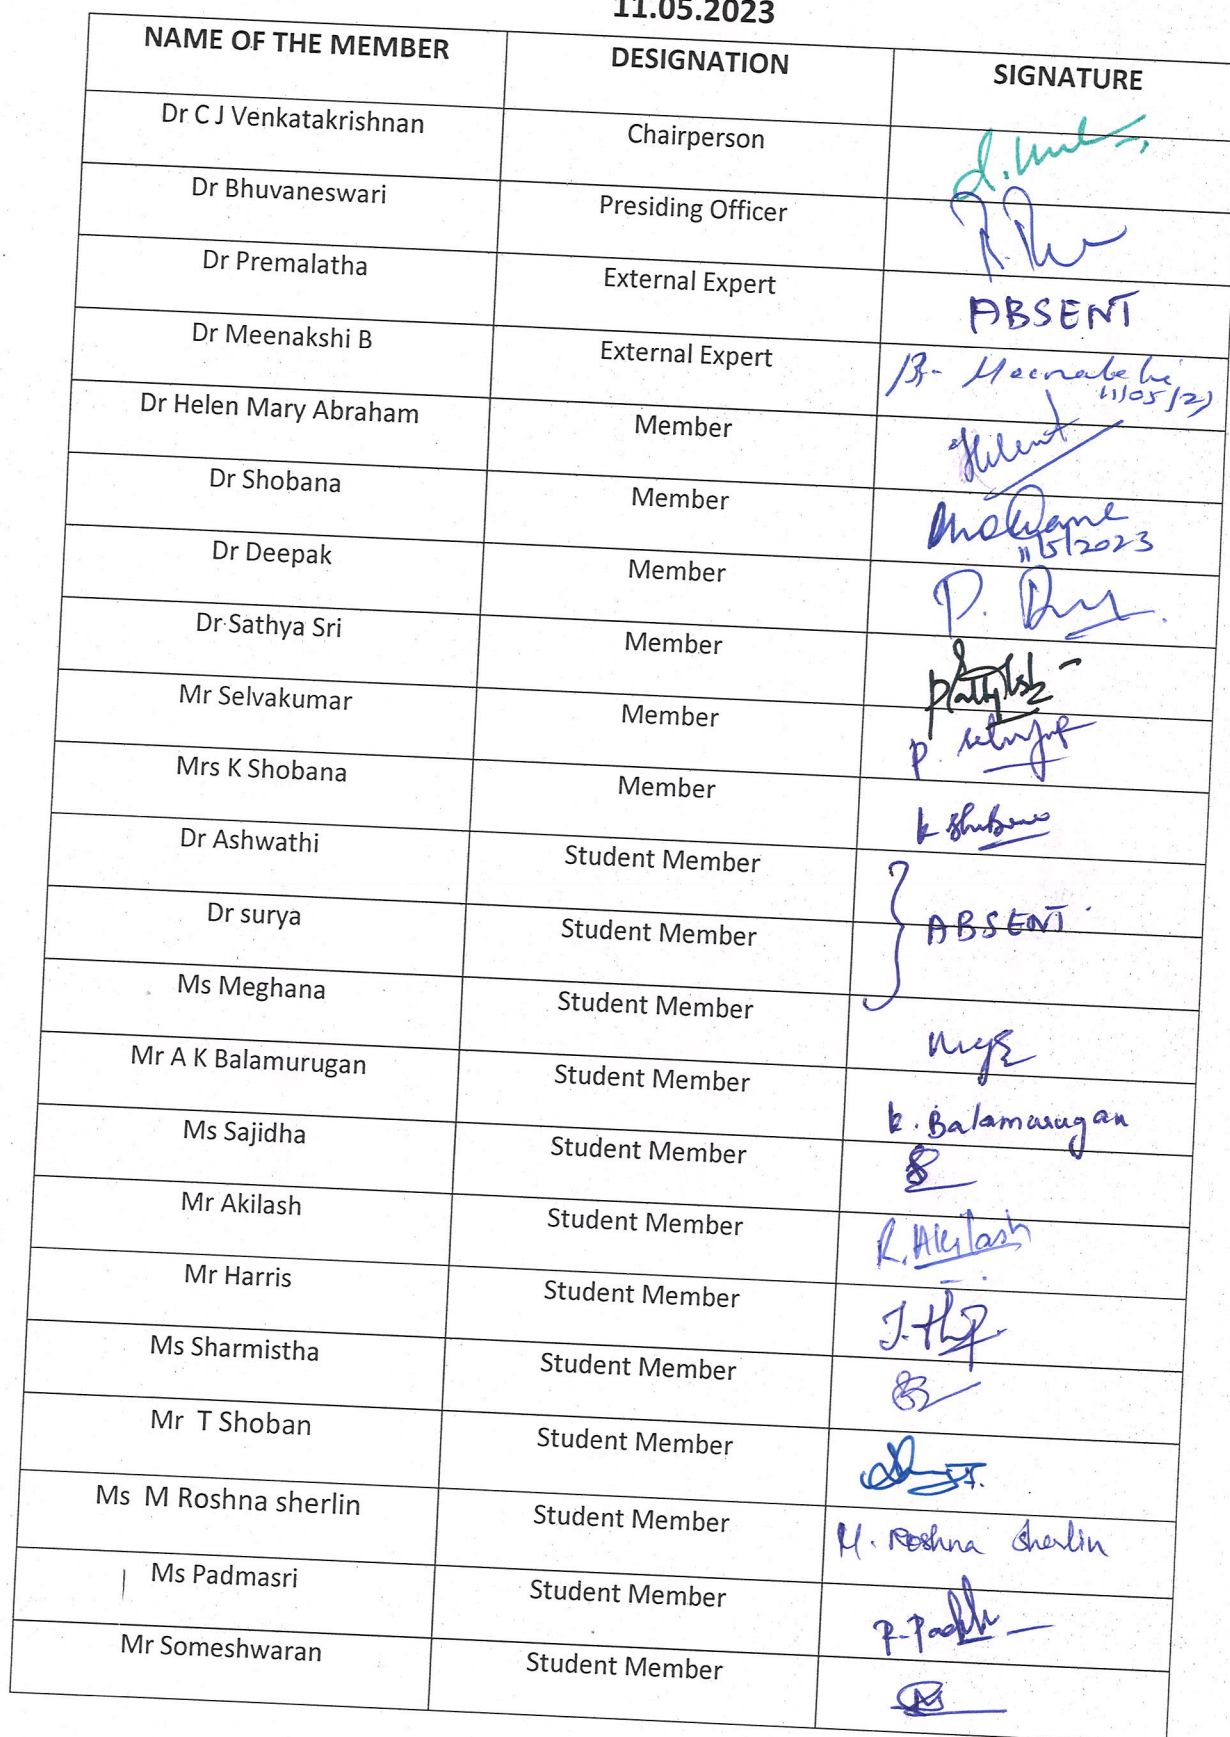 11.05.2023
NAME OF THE MEMBER DESIGNATION SIGNATURE
Dr C J Venkatakrishnan Chairperson
Dr Bhuvaneswari Presiding Officer
Dr Premalatha External Expert ABSENT
Dr Meenakshi B External Expert B. Meenakshi
11/05/23
Dr Helen Mary Abraham Member
Dr Shobana Member
11/5/2023
Dr Deepak Member
Dr Sathya Sri Member
Mr Selvakumar Member
Mrs K Shobana Member K Shobana
Dr Ashwathi Student Member
Dr surya Student Member ABSENT
Ms Meghana Student Member
Mr A K Balamurugan Student Member k. Balamurugan
Ms Sajidha Student Member
Mr Akilash Student Member R. Akilash
Mr Harris Student Member
Ms Sharmistha Student Member
Mr T Shoban Student Member
Ms M Roshna sherlin Student Member M. Roshna Sherlin
Ms Padmasri Student Member
Mr Someshwaran Student Member